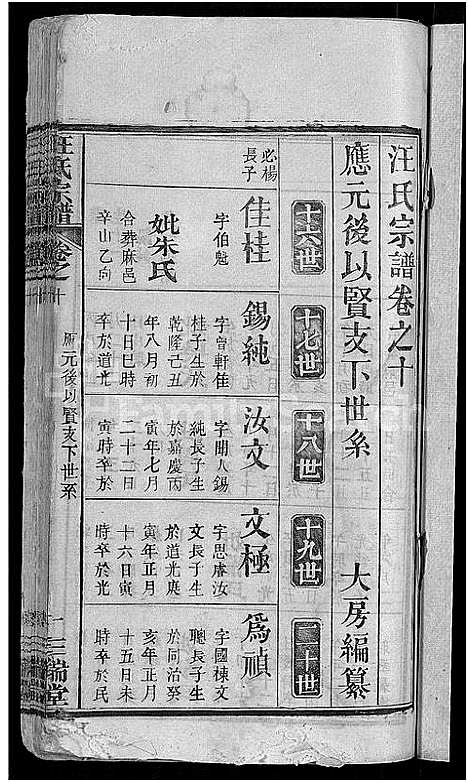 汪氏宗譜卷之十
應元後以賢支下世系
大房編纂
十六世
十七世
十八世
十九世
二十世
必楊
長子
佳桂
字伯魁
妣朱氏
合葬麻邑
辛山乙向
錫純
字曾軒佳
桂子生於
乾隆己丑
年八月初
十日巳時
卒於道光
汝文
字開人錫
純長子生
於嘉慶丙
寅年七月
二十二日
寅時卒於
文極
字思睿汝
文長子生
於道光庚
寅年正月
十六日寅
時卒於光
為禎
字國棟文
聰長子生
於同治癸
亥年正月
十五日未
時卒於民
汪氏宗譜
卷之十
應元後以賢支下世系
三瑞堂